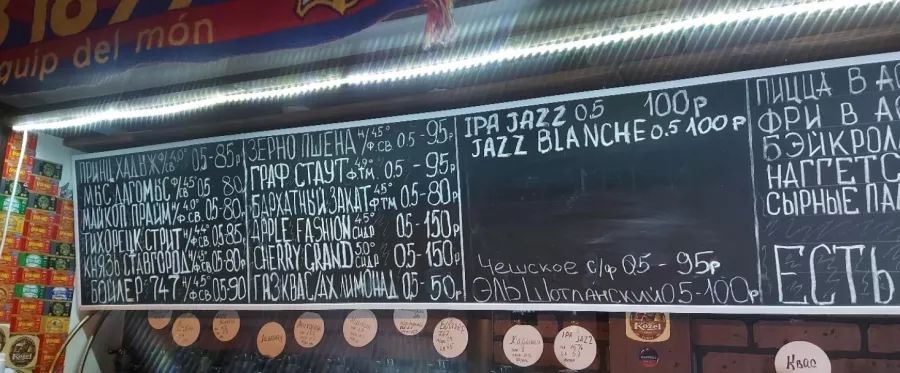 1899
quip del món
ПРИНЦ ХАДЖ Ф/СВ 4.0° 0.5-85р
МБС ДАГОМЫС Ф/СВ 4.5° 0.5 80
МАЙКОП ПРАЙМ Ф.СВ. 4.0° 0.5-80р
ТИХОРЕЦК СТРИТ Н/Ф СВ 4.4° 0.5-85
КНЯЗЬ СТАВГОРОД Н/Ф СВ 4.5° 0.5-80р
БОЙЛЕР 747 Н/Ф СВ 4.5° 0.5-90
ЗЕРНО ПШЕНА Н/Ф.СВ 4.5° 0.5-95р
ГРАФ СТАУТ Ф.ТМ. 0.5-95р
БАРХАТНЫЙ ЗАКАТ ФТМ 4.5° 0.5-80р
APPLE FASHION СИДР 4.5° 0.5-150
CHERRY GRAND СИДР 5.0° 0.5-150
ГАЗ КВАС/АХ ЛИМОНАД 0.5-50р
IPA JAZZ 0.5 100р
JAZZ BLANCHE 0.5 100р
Чешское с/ф 0,5-95р
ЭЛЬ Шотланский 0.5-100р
ПИЦЦА В АС
ФРИ В АС
БЭЙКРОЛ
НАГГЕТС
СЫРНЫЕ ПАЛ
ЕСТЬ
IPA JAZZ
Kozel
Kozel
Квас